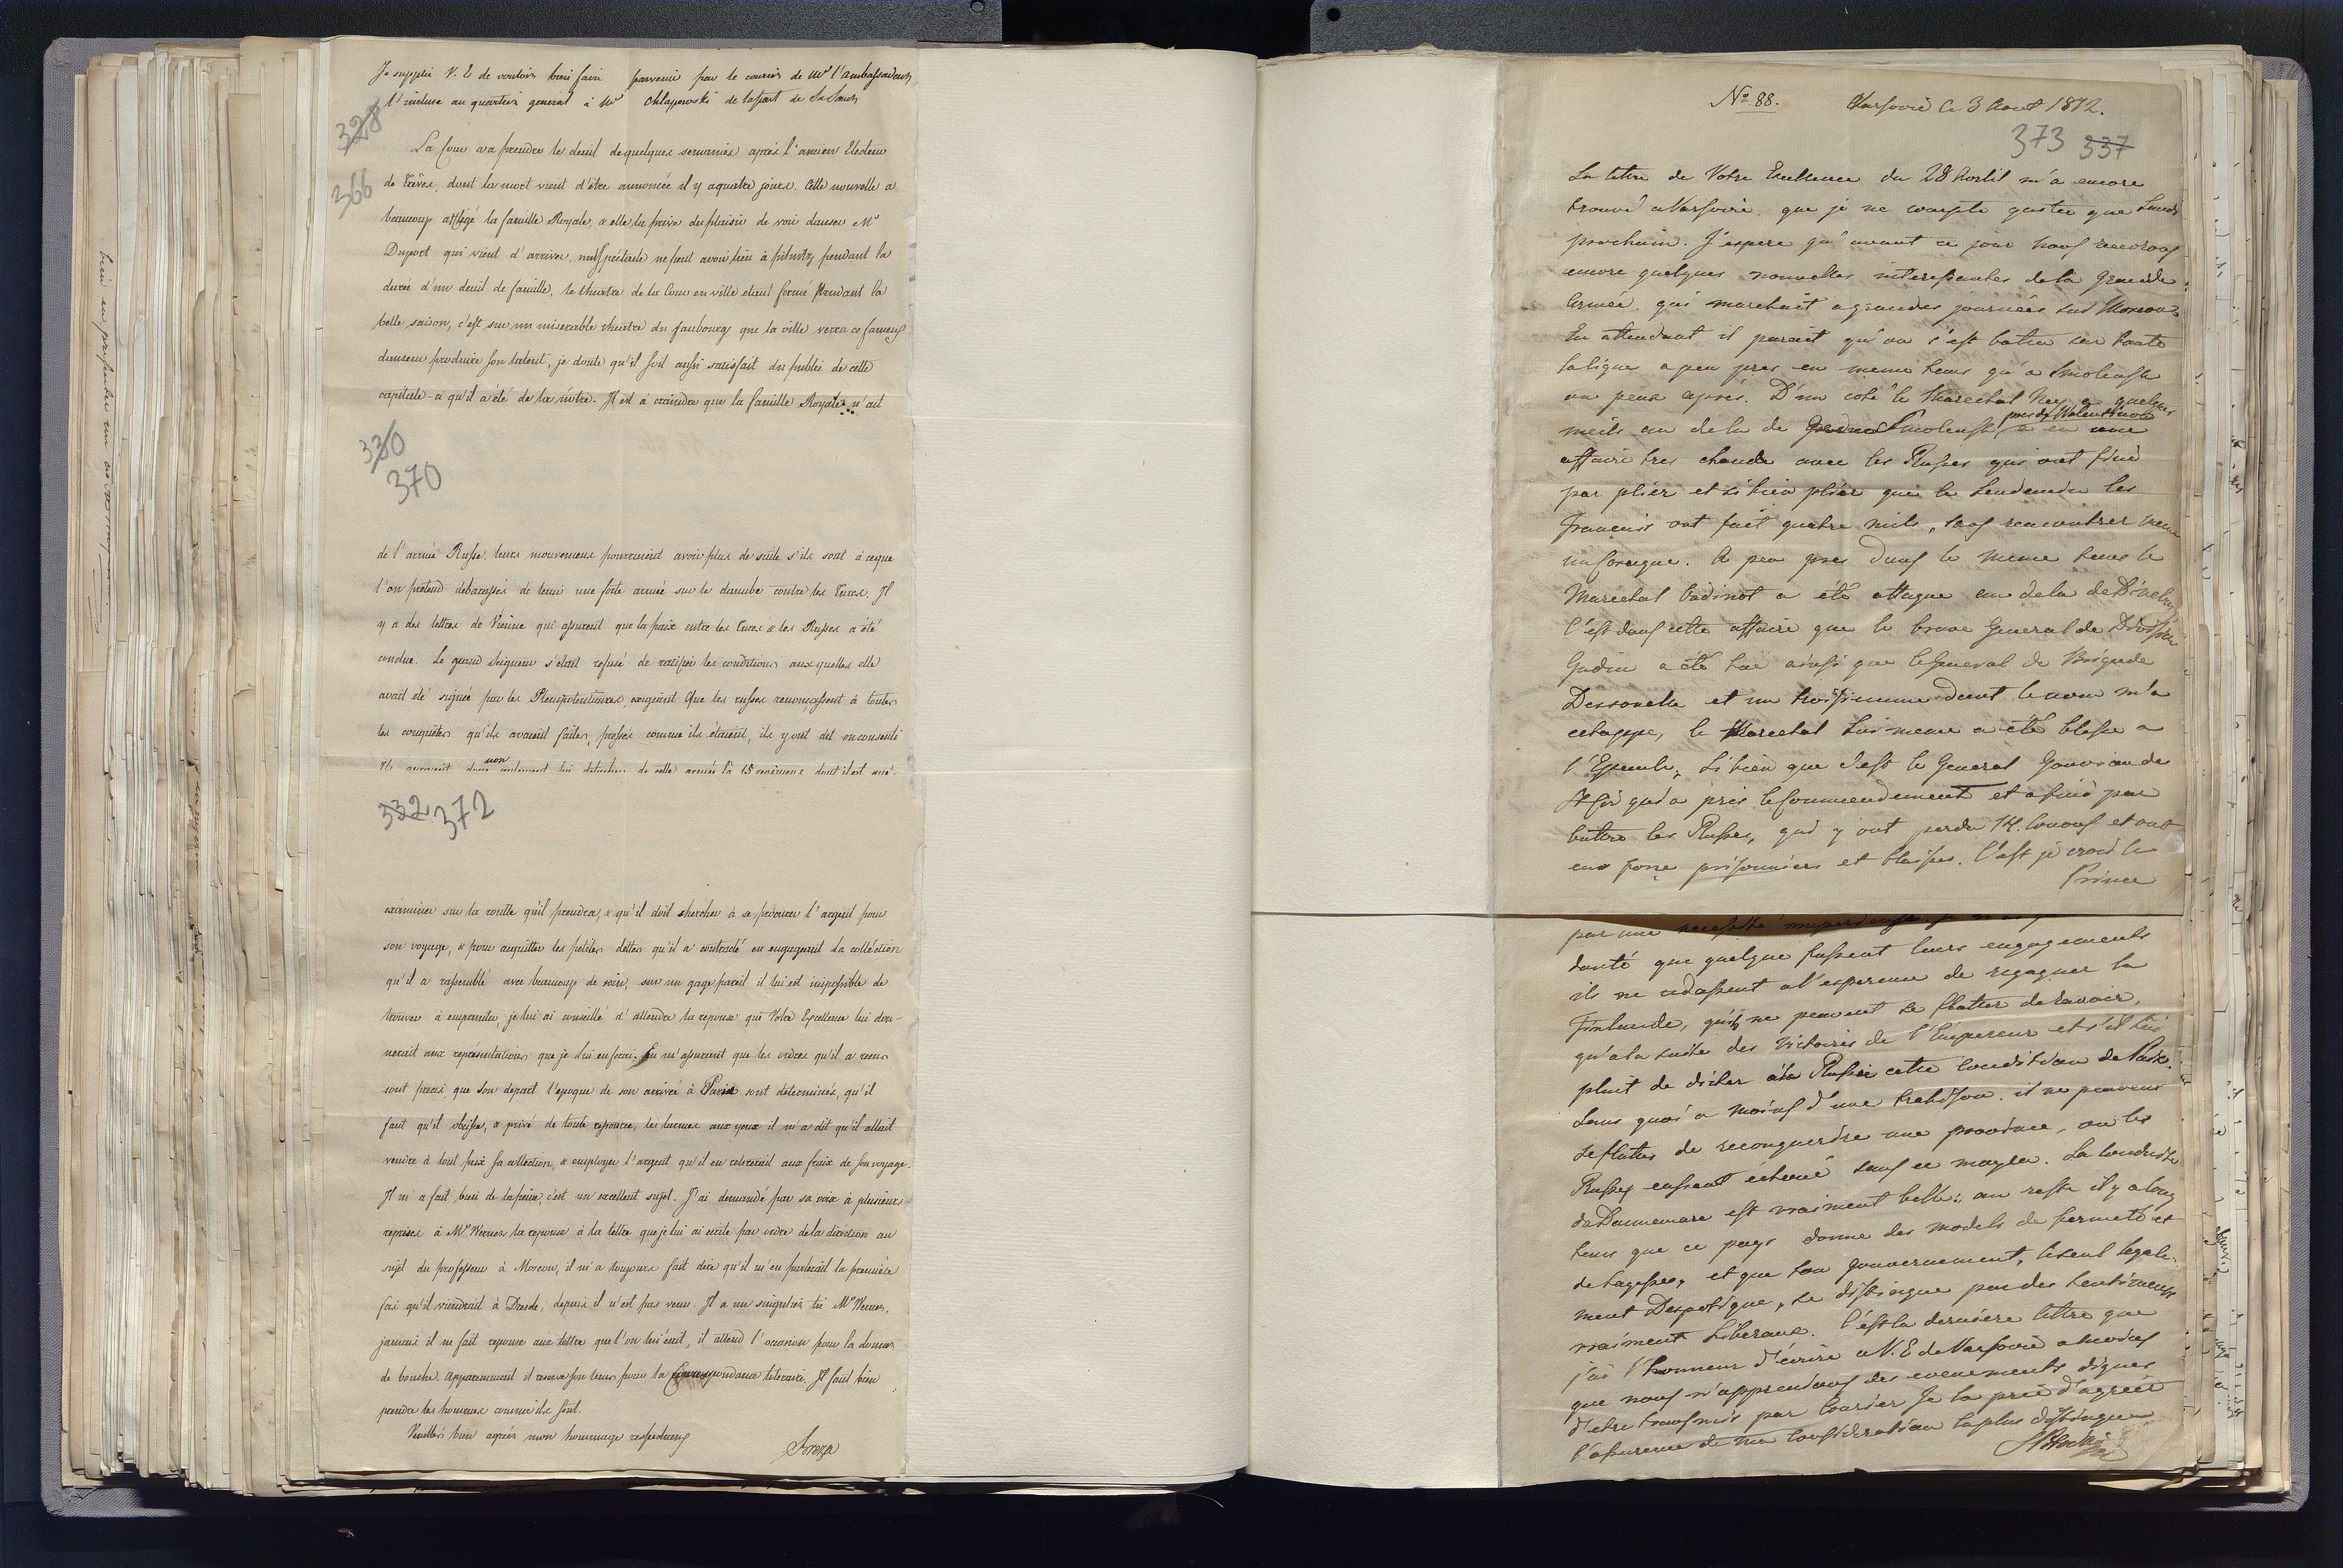 Je supplie V. E de vouloir bien faire parvenir par le courier de Mr l'ambassadeur
l'incluse au quartier general à Mr Chlapowski de la part de sa Soeur
328
La Cour va prendre le deuil de quelques semaines après l'ancien Electeur
366
de Trèves, dont la mort vient d'être annoncée il y a quatre jours. Cette nouvelle a
beaucoup affligé la famille Royale, & elle la prive du plaisir de voir danser Mr
Duport qui vient d'arriver, nul spectacle ne peut avoir lieu à pilnitz pendant la
durée d'un deuil de famille, le theatre de la Cour en ville etant fermé pendant la
belle saison, c'est sur un miserable theatre du faubourg que la ville verra ce fameux
danseur produire son talent, je doute qu'il soit aussi satisfait du public de cette
capitale-ci qu'il a été de la nôtre. Il est à craindre que la famille Royale n'ait
330
370
de l'armée Russe, leurs mouvemens pourraient avoir plus de suite s'ils sont à ce que
l'on prétend debarassés de tenir une forte armée sur le danube contre les Turcs. Il
y a des lettres de Vienne qui assurent que la paix entre les Turcs & les Russes a été
conclue. Le grand Seigneur s'était refusé de ratifier les conditions aux quelles elle
avait été signée par les Plenipotentiaires, exigeant que les russes renonçassent à toutes
les conquêtes qu'ils avaient faites, pressés comme ils étaient, ils y ont dit-on consenti
non
332 372
examiner sur la routte qu'il prendra, & qu'il doit chercher à se procurer l'argent pour
son voyage, & pour acquitter les petites dettes qu'il a contracté en engageant sa collection
qu'il a rassemblé avec beaucoup de soin, sur un gage pareil il lui est impossible de
trouver à emprunter, je lui ai conseillé d'attendre la reponse que Votre Excellence lui don-
nerait aux représentations que je lui en ferai. En m'assurant que les ordres qu'il a recus
sont precis que son depart l'epoque de son arrivée à Paris sont determinés, qu'il
faut qu'il obéisse, & privé de toute ressource, les larmes aux yeux il m'a dit qu'il allait
vendre à tout prix sa collection, & employer l'argent qu'il en retirerait aux fraix de son voyage.
Il m'a fait bien de la peine, c'est un excellent sujet. J'ai demandé par sa voix à plusieurs
reprises à Mr Werner la reponse à la lettre que je lui ai écrite par ordre de la direction au
sujet du professeur à Moscou, il m'a toujours fait dire qu'il m'en parlerait la première
fois qu'il viendrait à Dresde, depuis il n'est pas venu. Il a un singulier tic Mr Werner,
jamais il ne fait reponse aux lettre que l'on lui écrit, il attend l'occasion pour la donner
de bouche. Apparemment il reserve son tems pour la Correspondance literaire. Il faut bien
prendre les hommes comme ils sont.
Veuillés bien agréer mon hommage respectueux
Breza
No 88. Varsovie Ce 3 Aout 1812.
373 337
La lettre de Votre Excellence du 28 m'a encore
trouvé a Varsovie, que je ne compte quitter que Lundi
prochain. J'espere qu'avant ce jour nous recevrons
encore quelques nouvelles interessantes de la Grande
Armée, qui marchait a grandes journées sur Moscou.
En attendant il parait qu'on s'est battu sur toute
la ligne a peu pres en meme tems qu'a Smolensk
ou peu après. D'un coté le Marechal Ney a quelques
pres de Walentinow
meils au dela de Smolensk a eu une
affaire tres chaude avec les Russes qui ont finé
par plier et si bien plier que le lendemain les
français ont fait quatre mils, sans rencontrer meme
un Cosaque. A peu pres dans le meme tems le
Marechal Oudinot a été attaqué au dela de
C'est dans cette affaire que le brave General de Division
Gudin a été tué ainsi que le General de Brigade
et un troisieme dont le nom m'a
echappé, le Marechal lui meme a été blessé a
l'Epaule, si bien que c'est le General Gouvion de
St Cir qui a pris le Commendement et a finé par
battre les Russes, qui y ont perdu 14 Canons et ont
eus force prisonniers et blessés. C'est je crois le
Prince
par une
douté que quelque fussent leurs engagements
ils ne cedassent a l'esperence de regagner la
Finlande, qu'ils ne peuvent se flatter de ravoir,
qu'a la suite des victoires de l'Empereur et s'il lui
plait de dicter à la Russie cette Condition de Paix.
Sans quoi a moins d'une trahison, il ne peuvent
se flatter de reconquerdre une province, ou les
Russes eussent échoué sans ce moyen. La Conduite
du Dannemarc est vraiment belle: au reste il y a long
tems que ce pays donne des models de fermeté et
de sagesse, et que son gouvernement, le seul legale-
ment Despotique, se distingue par des sentiments
vraiment Liberaux. C'est la derniere lettre que
j'ai l'honneur d'écrire a V. E de Varsovie a moins
que nous n'apprendions des evenements dignes
d'etre transmis par Courier. Je la prie d'agréer
l'assurence de ma Consideration la plus distinguée